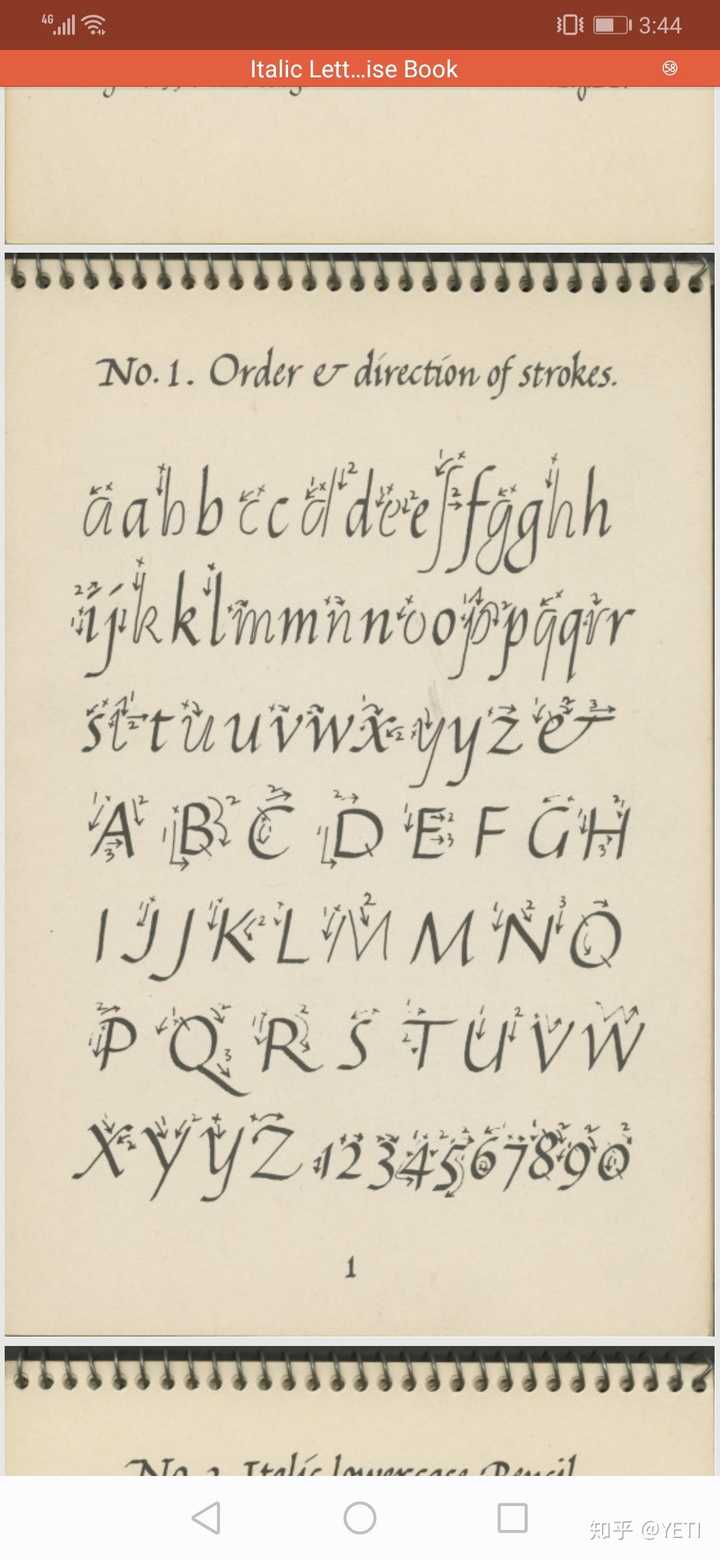 4G 3:44
Italic Lett...ise Book 58
No. 1. Order & direction of strokes.
a a b b c c d d e e f f g g h h
i j k k l m m n n o o p p q q r r
s t t u u v w x y y z &
A B C D E F G H
I J J K L M M N O
P Q R S T U V W
X Y Y Z 1 2 3 4 5 6 7 8 9 0
1
Italic lowercase Pencil
知乎 @YETI